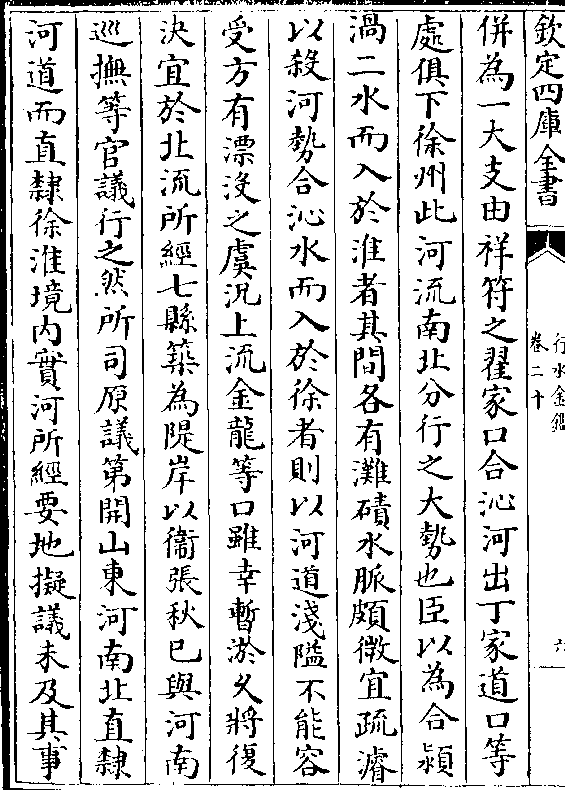 欽定四庫全書
行水金鑑
卷二十
六
併為一大支由祥符之翟家口合沁河出丁家道口等
處俱下徐州此河流南北分行之大勢也臣以為合潁
渦二水而入於淮者其間各有灘磧水脈頗微宜疏濬
以殺河勢合沁水而入於徐者則以河道淺隘不能容
受方有漂沒之虞況上流金龍等口雖幸暫淤久將復
決宜於北流所經七縣築為隄岸以衞張秋已與河南
巡撫等官議行之然所司原議第開山東河南北直隸
河道而直隸徐淮境內實河所經要地擬議未及其事